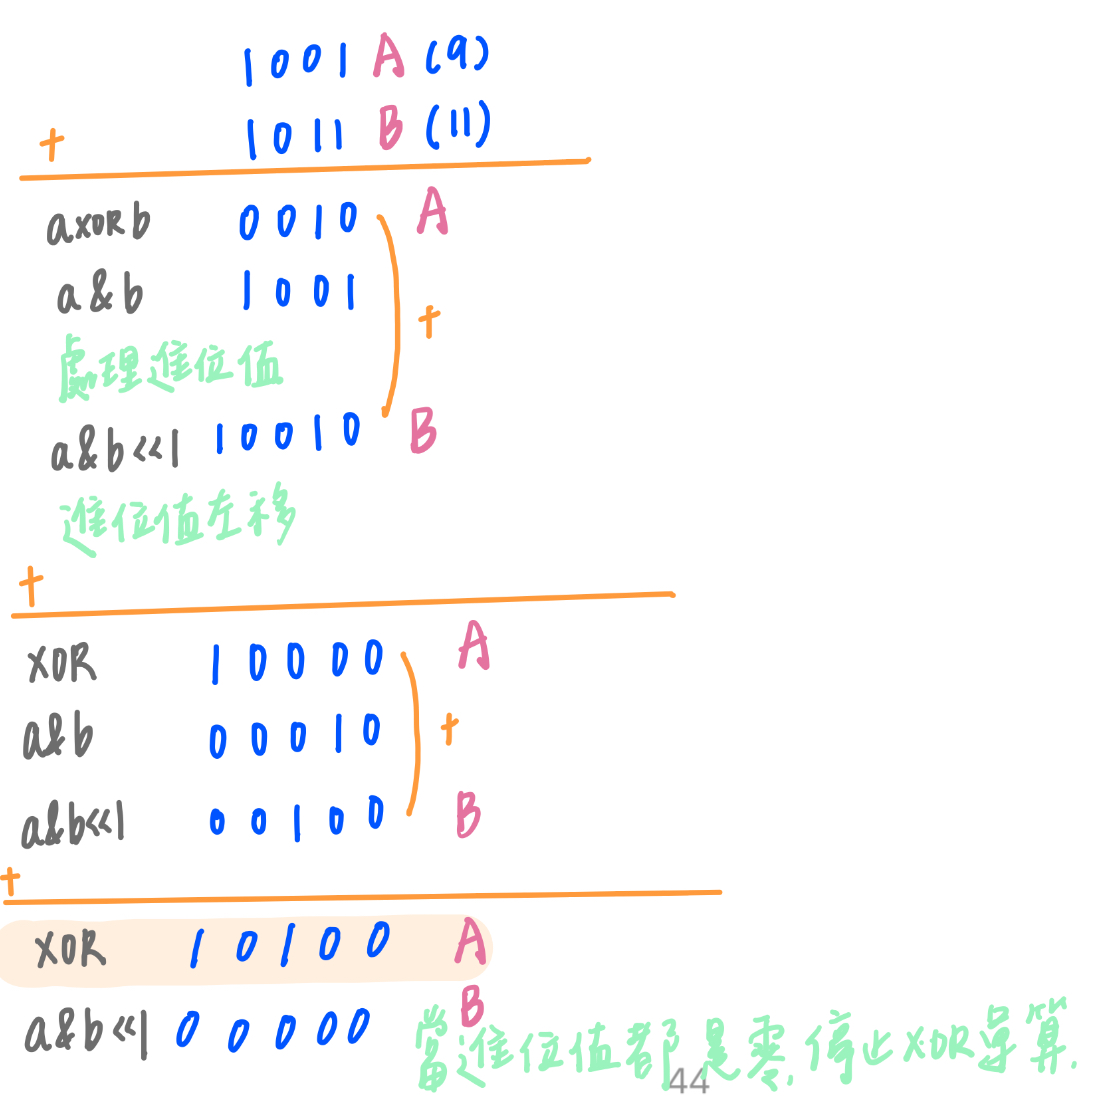 1001 A (9)
+ 1011 B (11)
a XOR b 0010 A
a & b 1001
+
處理進位值
a&b<<1 10010 B
進位值左移
+
XOR 10000 A
a&b 00010
+
a&b<<1 00100 B
+
XOR 10100 A
a&b<<1 00000 B
當進位值都是零,停止XOR運算.
44